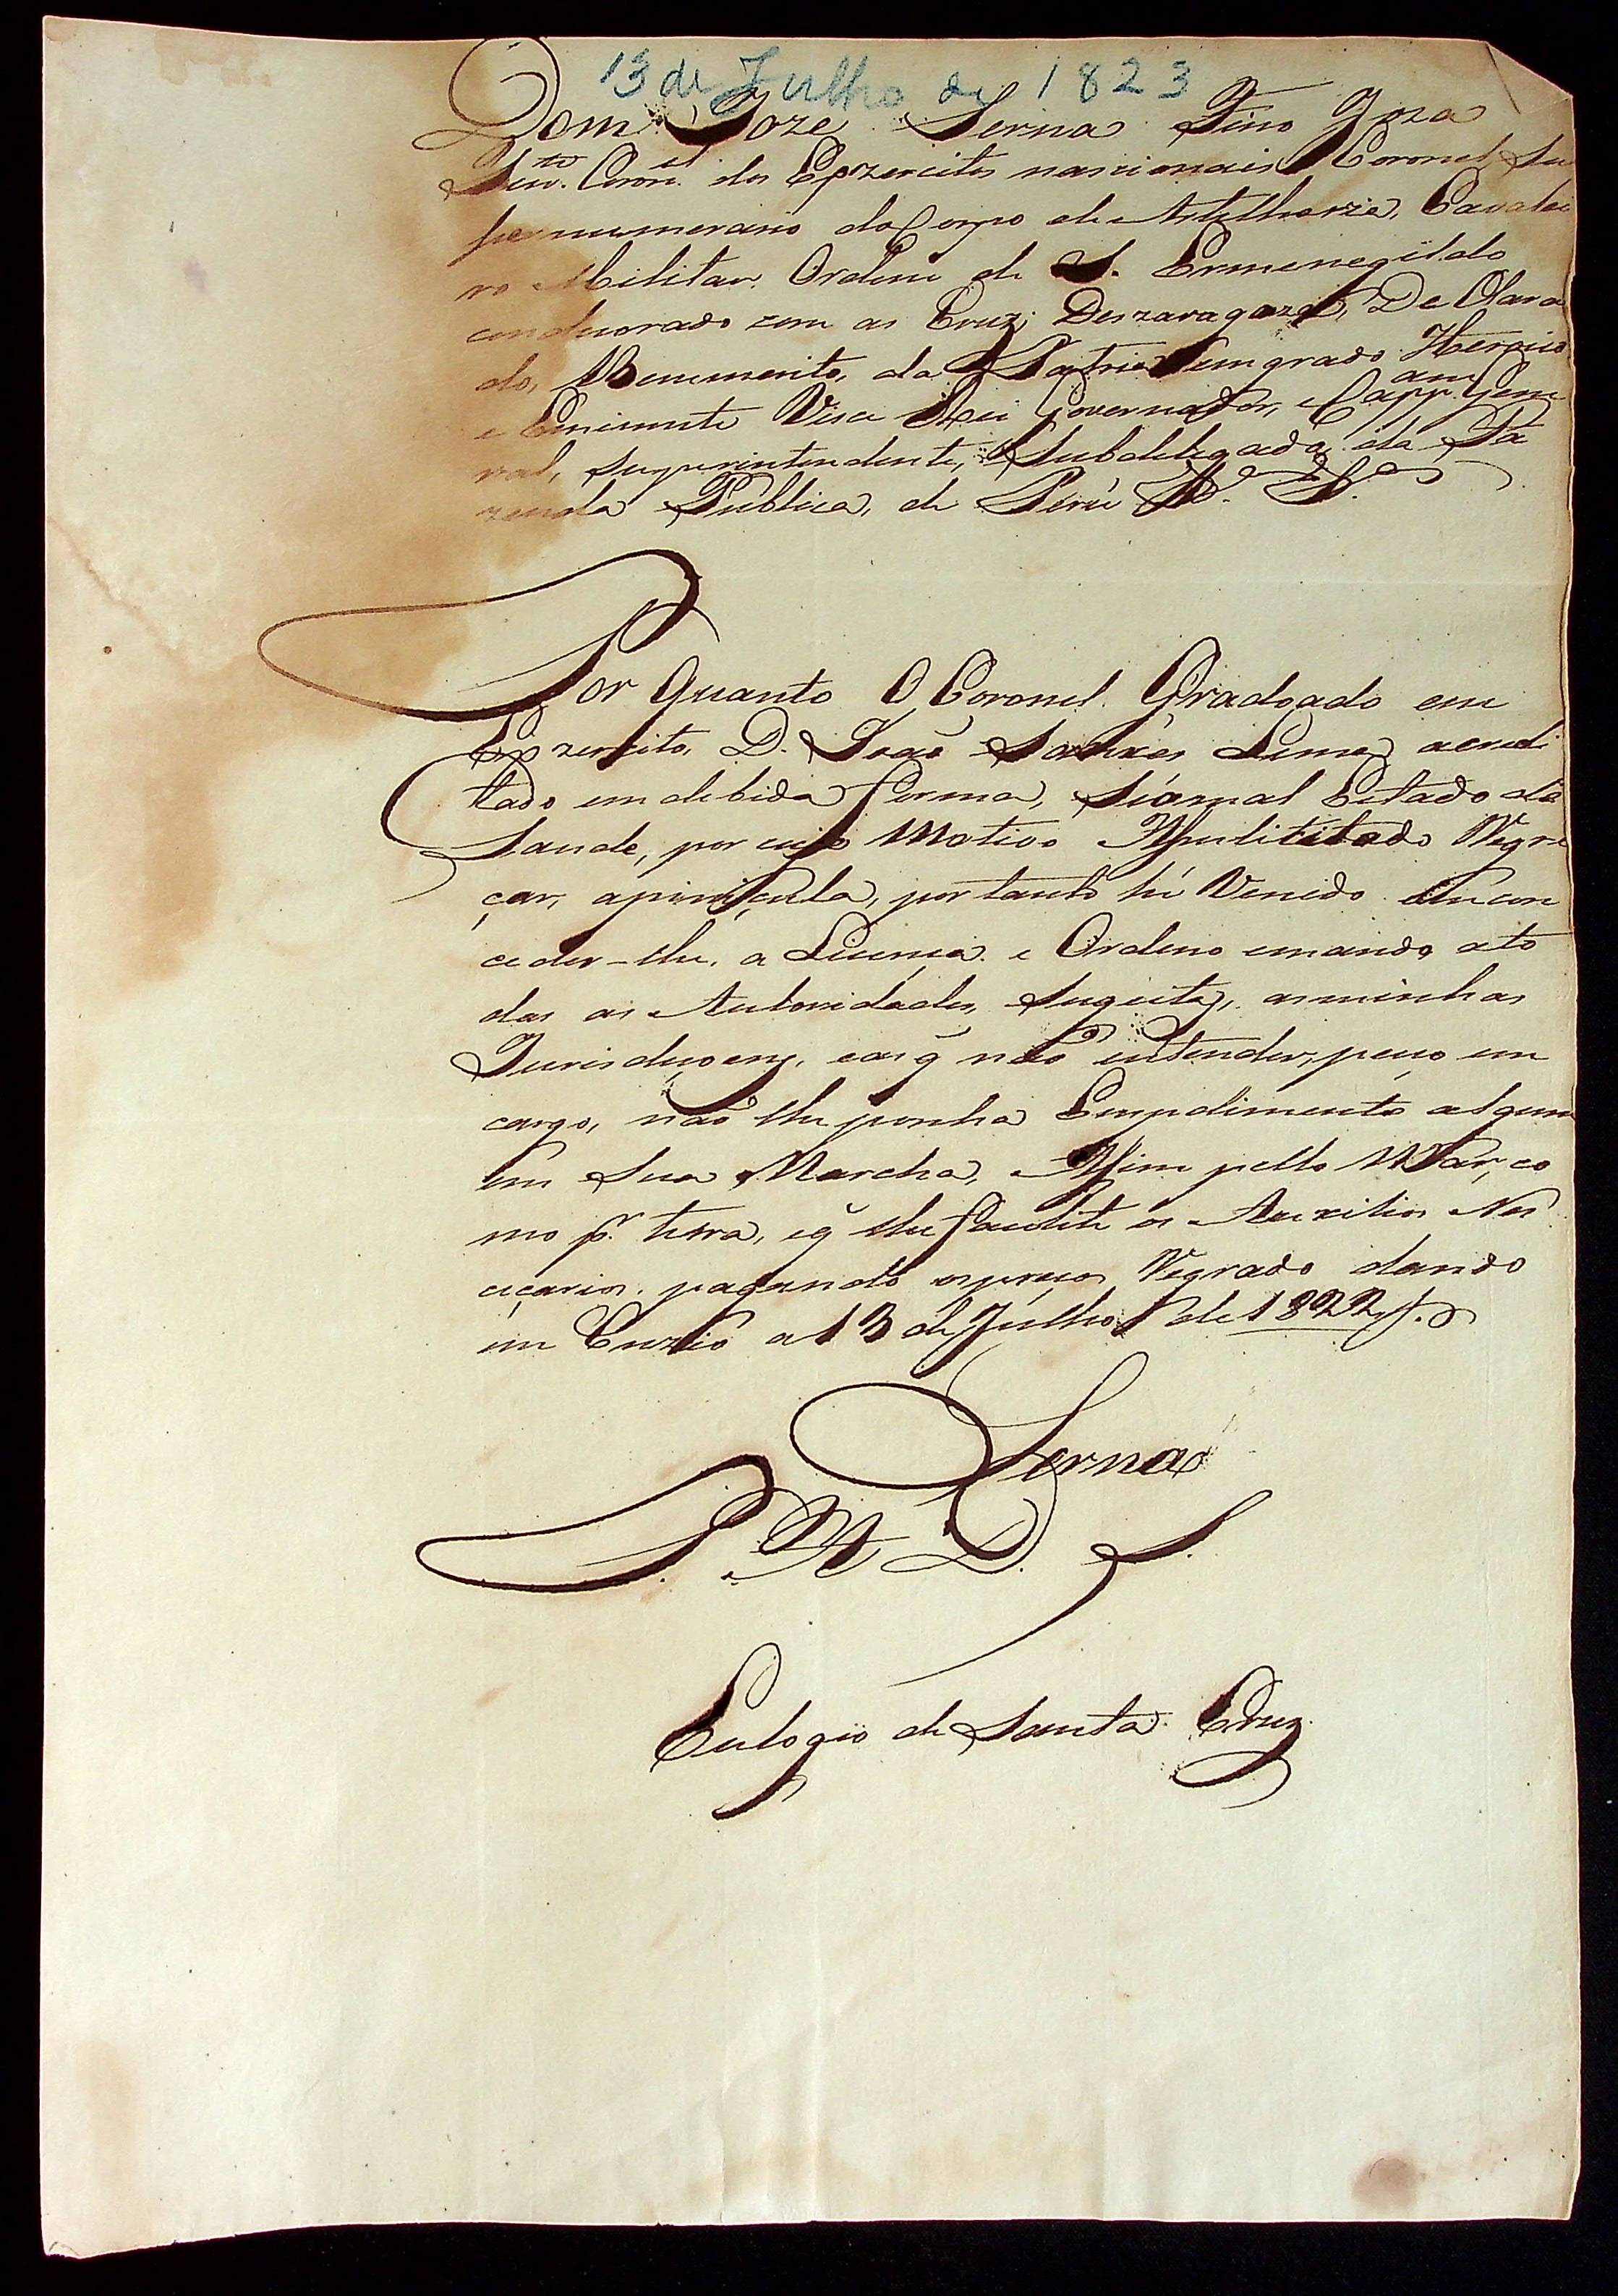 13 de Julho de 1823
Dom Joze Serna Fino Joza
Ten.te Coron.el dos Epzercitos nascionais Coronel Su
pernumerario do Corpo de Artelharia, Cavalei
ro Militar, Ordem de S. Ermenegildo
condecorado com as Cruz; Deszaragoza, De Olara
do, Benemerito, da Patria emgrado Heroico
e Eminente Vica Rei Governador, e Capp.am Gene
ral, Superintendente, Subdelegado da Fa
zenda Publica, de Perú
Por quanto O Coronel Gradoado em
Epzercito, D. João Lima acredi
tado em debida forma, Estado de
Saude, por cujo Motivo Regre
çar, apiniçula, por tanto hi Venido con
ceder-lhe, a Licença e Ordeno emando ato
das as Autoridades, Sugeitas, asminhas
Jurisduçoens, eas q̃ não entender, peço em
cargo, não lhe ponha Empedimento algum
em Sua Marcha, Assim pello Mar, co
mo p.r terra, eq̃ lhe facilite os Auxilios Nes
ceçarios, pagando os preços Regrado dando
em Cuzco a 13 de Julho de 1822
Serna
P. M. D. S.
Eulogio de Santa Cruz